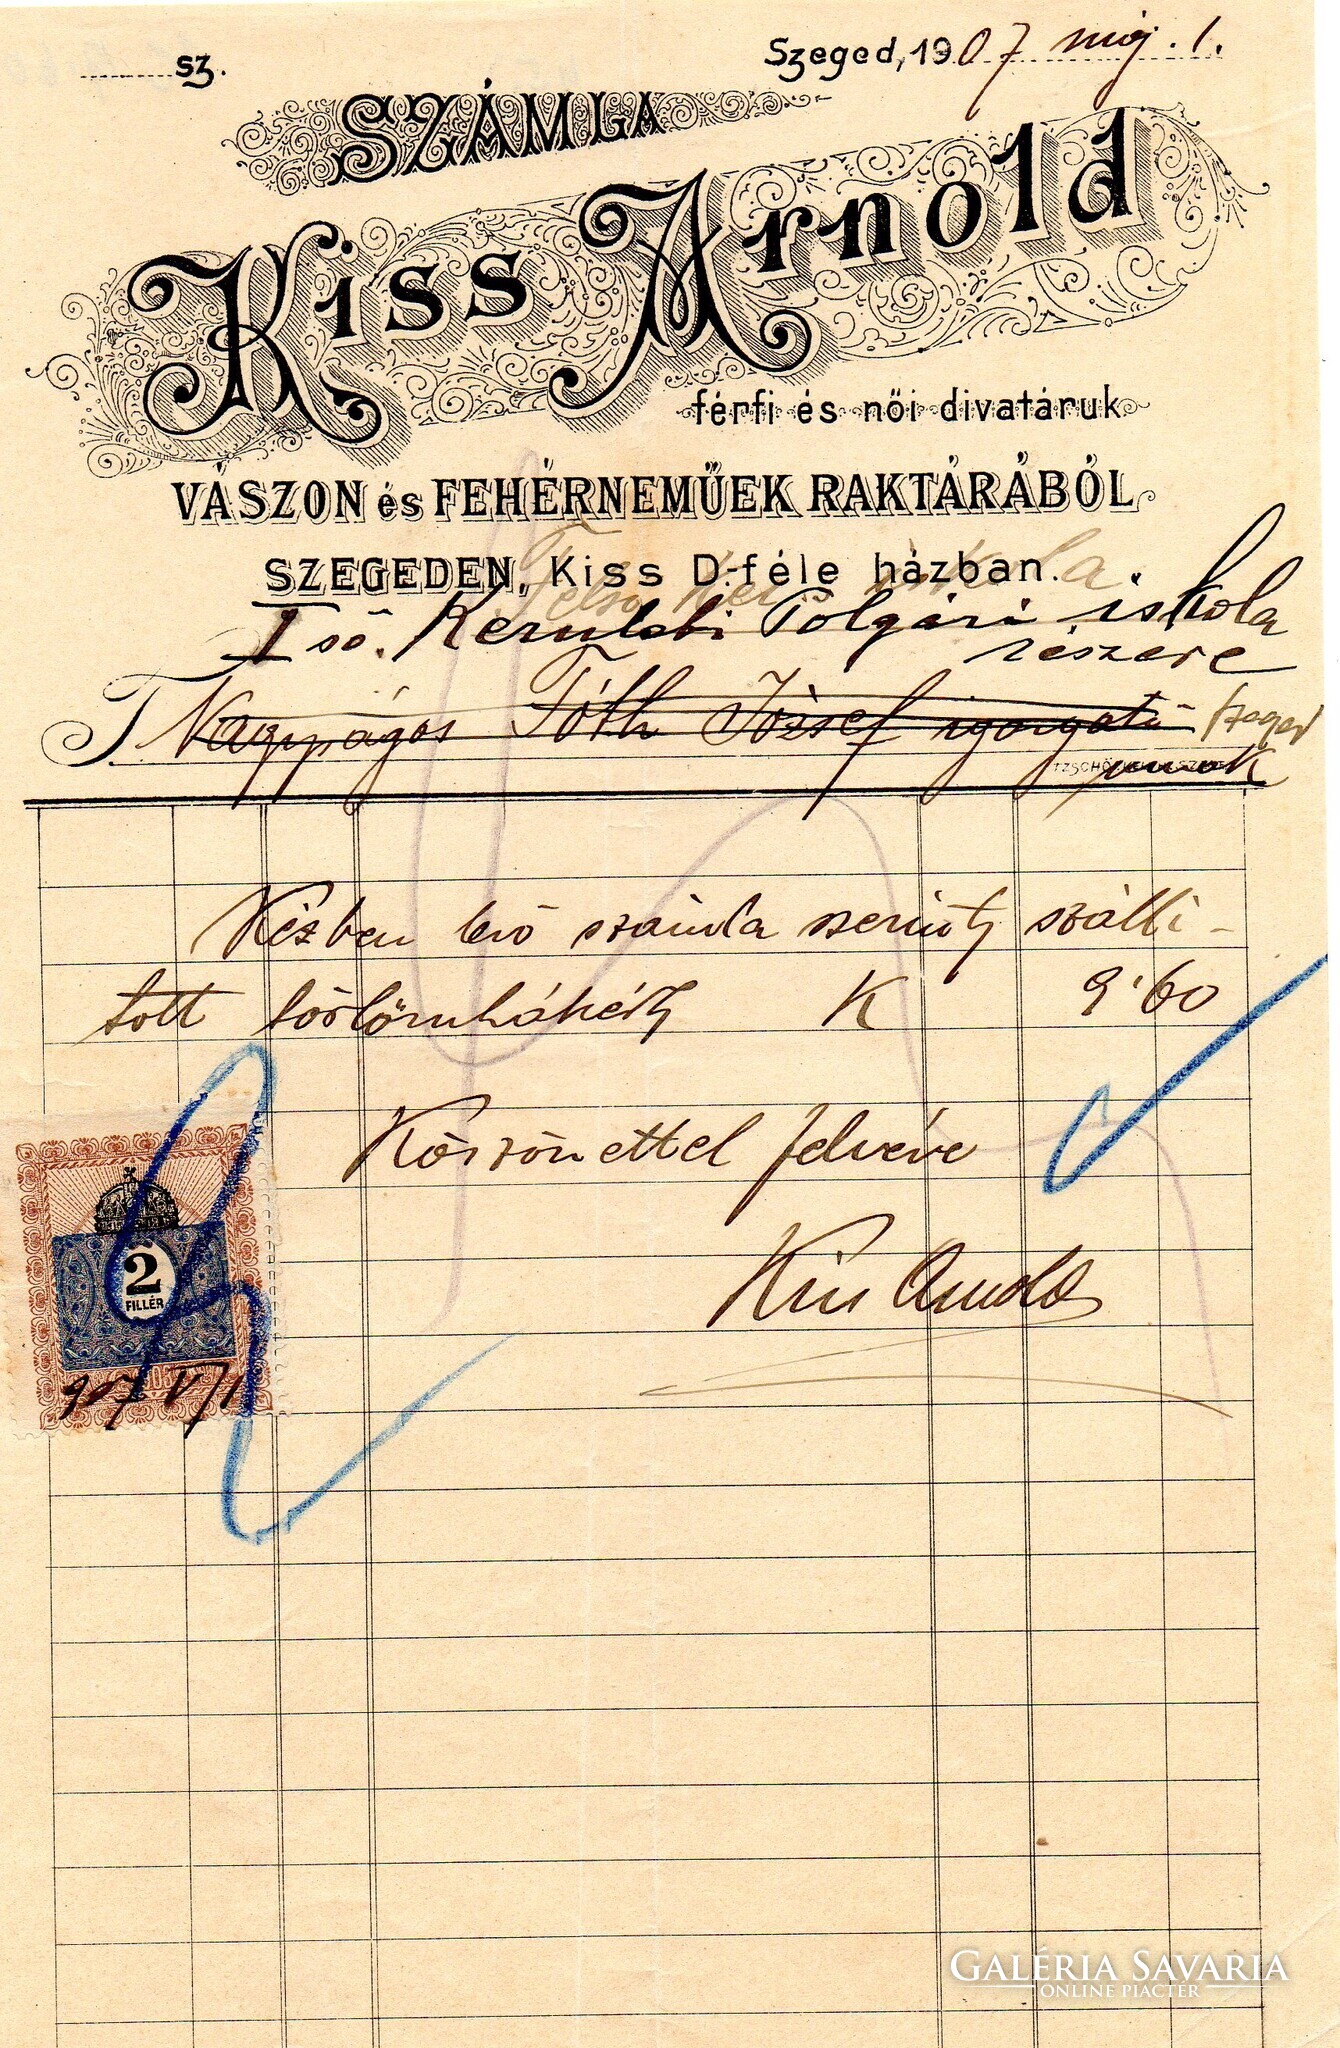 sz.
Szeged, 1907 máj. 1.
SZÁMLA
Kiss Arnold
férfi és női divatáruk
VÁSZON és FEHÉRNEMŰEK RAKTÁRÁBÓL
SZEGEDEN, Kiss D-féle házban.
Felső Ker. iskola
I ső. Kerületi Polgári iskola
részére
T. Nagyságos Tóth József igazgató Szeged
urnak
Kézben levő számla szerint szálli-
tott törlőruháért K 9·60
Köszönettel felvéve
Kiss Arnold
2
FILLÉR
907 V/1
GALÉRIA SAVARIA
ONLINE PIACTÉR